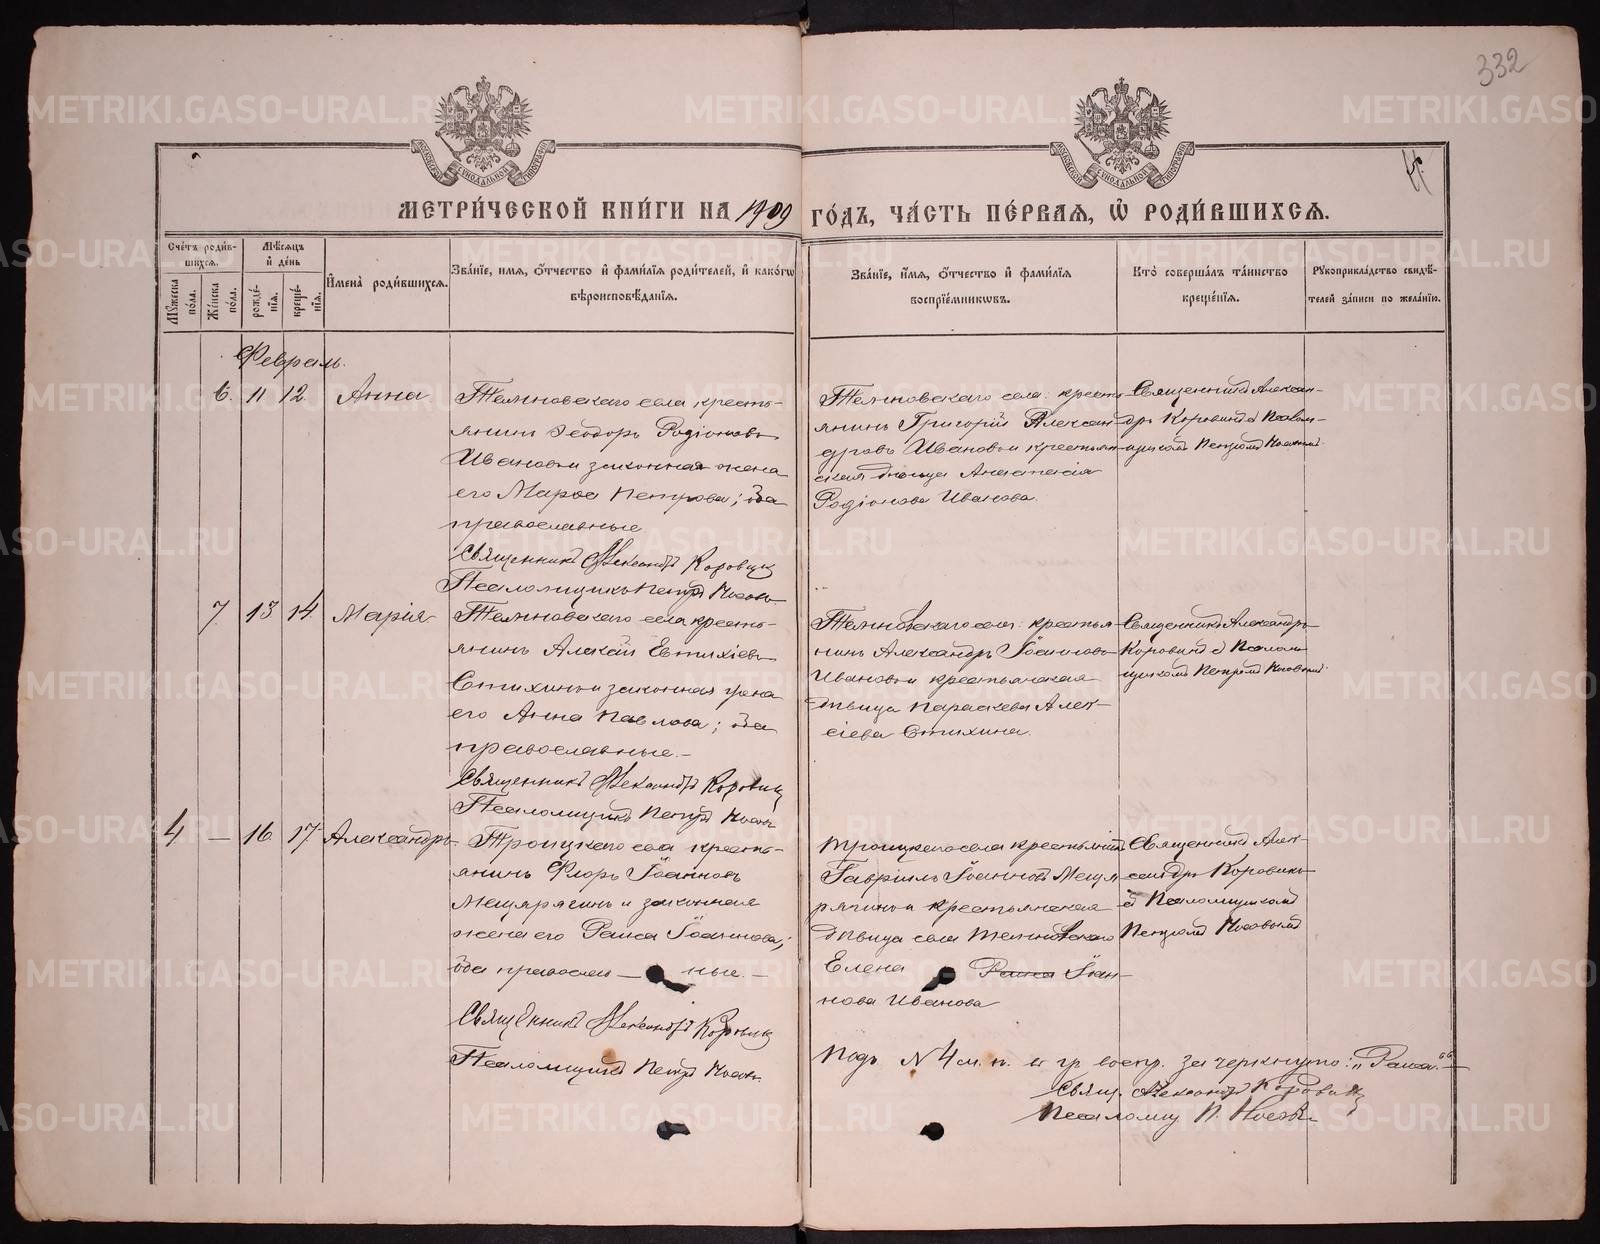 332
4.
МЕТРИ́ЧЕСКОЙ КНИ́ГИ НА 1909 ГО́ДЪ, ЧА́СТЬ ПЕ́РВАЯ, Ѡ҆ РОДИ́ВШИХСѦ.
Сче́тъ роди́вшихсѧ.
Мꙋ́жеска по́ла.
Же́нска по́ла.
Мѣ́сѧцъ и҆ де́нь
рожде́нїѧ.
креще́нїѧ.
И҆мена̀ роди́вшихсѧ.
Зва́нїе, и҆́мѧ, ѻ҆́тчество и҆ фами́лїѧ роди́телей, и҆ како́гѡ
вѣроисповѣ́данїѧ.
Зва́нїе, и҆́мѧ, ѻ҆́тчество и҆ фами́лїѧ
воспрїе́мникѡвъ.
Кто̀ соверша́лъ та́инство
креще́нїѧ.
Рꙋкоприкла́дство свидѣ́-
телей за́писи по жела́нїю.
Февраль.
6. 11 12. Анна
Темновскаго села кресть-
янинъ Ѳеодоръ Родіоновъ
Ивановъ и законная жена
его Марѳа Петрова; оба
православные
Священникъ Александръ Коровинъ
Псаломщикъ Петръ Носовъ.
Темновскаго села: кресть-
янинъ Григорій Алексан-
дровъ Ивановъ и крестьян-
ская дѣвица Анастасія
Родіонова Иванова.
Священникъ Алексан-
дръ Коровинъ съ Псалом-
щикомъ Петромъ Носовымъ.
7 13 14. Марія
Темновскаго села кресть-
янинъ Алексій Евтихіевъ
Стихинъ и законная жена
его Анна Павлова; оба
православные.-
Священникъ Александръ Коровинъ
Псаломщикъ Петръ Носовъ
Темновскаго села: крестья-
нинъ Александръ Іоанновъ
Ивановъ и крестьянская
дѣвица Параскева Алек-
сіева Стихина.
Священникъ Александръ
Коровинъ съ Псалом-
щикомъ Петромъ Носовымъ.
4 — 16 17 Александръ
Троицкаго села кресть-
янинъ Флоръ Іоанновъ
Мещерягинъ и законная
жена его Раиса Іоаннова;
оба правосла — вные. —
Священникъ Александръ Коровинъ
Псаломщикъ Петръ Носовъ.
Троицкаго села крестьянинъ
Гавріилъ Іоанновъ Мещя-
рягинъ и крестьянская
дѣвица села Темновскаго
Елена Раиса Іоан-
нова Иванова
Священникъ Алек-
сандръ Коровинъ
съ Псаломщикомъ
Петромъ Носовымъ
Подъ N 4 м. п. въ гр. воспр. зачеркнуто: „Раиса“. —
Свящ. Александръ Коровинъ
Псаломщ. П. Носовъ
METRIKI.GASO-URAL.RU